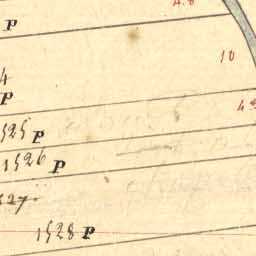 P
10
4
P
1525 P
1526 P
1527.
1528 P